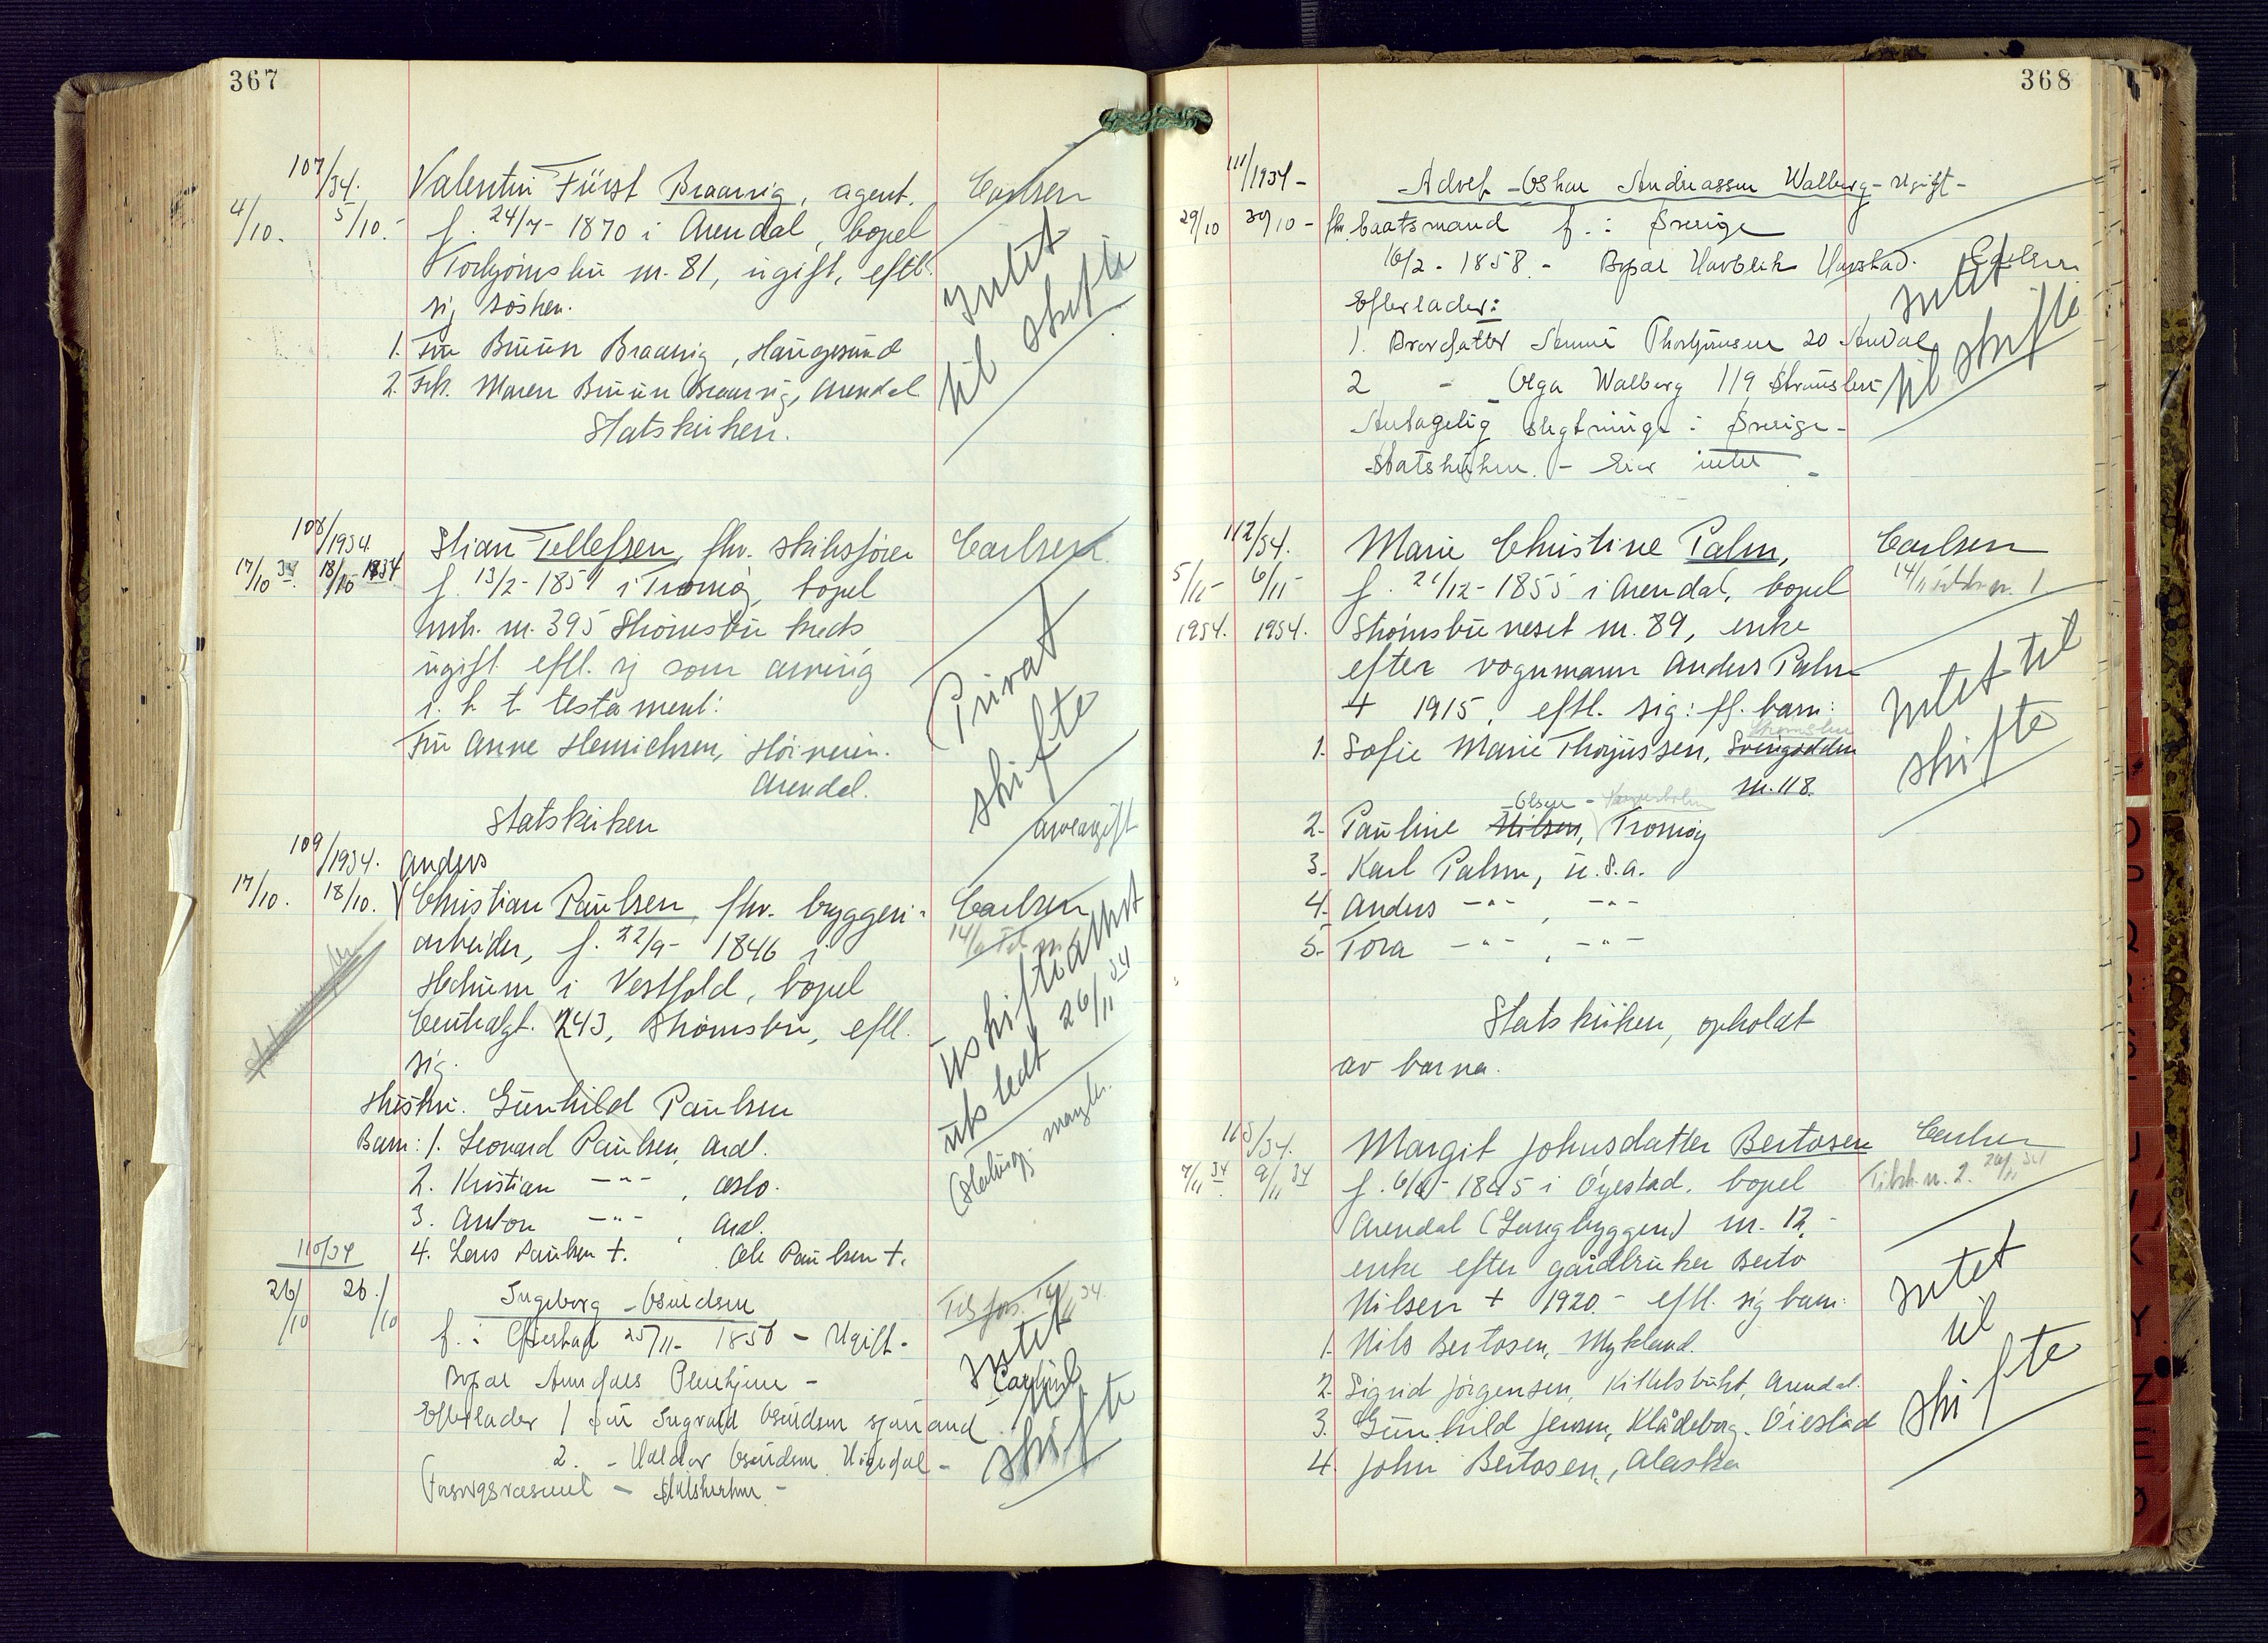 367
107/34.
4/10. 5/10.-
Valentin Fürst Braarvig, agent.
f. 24/7- 1870 i Arendal, bopel
Torbjörnsbu nr. 81, ugift, eftl.
sig søsken.
1. Fru Bruun Braarvig, Haugesund
2. Frk. Maren Bruun Braarvig, Arendal
Statskirken.
Carlsen
Intet
til skifte
108/1934.
17/10 34. 18/10-1934
Stian Tellefsen, fhv. skibsfører
f. 13/2-1851 i Tromøy, bopel
mtr. nr. 395 Strømsbu kreds
ugift eftl. sig som arving
i. h. t. testament:
Fru Anne Henrichsen, Höiveien.
Arendal.
Statskirken
Carlsen
Privat
skifte
arveavgift
109/1934.
17/10. 18/10.
Anders
Christian Paulsen, fhv. bryggeri-
arbeider, f. 22/9- 1846 i
Hedrum i Vestfold, bopel
Centralgt. 243, Strømsbu, eftl.
sig.
Hustru. Gunhild Paulsen
Barn: 1. Leonard Paulsen, Ardl.
2. Kristian -"- , Oslo.
3. Anton -"- , Ardl.
4. Lars Paulsen +. Ole Paulsen +.
Carlsen
Uskifteattest
utstedt 26/11 34
110/34
26/10 26./10
Ingeborg Osuldsen
f. i 25/11- 1856 - Ugift-
Bopæl Arendals Pleiehjem -
Efterlader 1 Ingvald Osuldsen sjømand
2. - Osuldsen
- Statskirken -
Intet
til
skifte
368
111/1934-
29/10 30/10 -
Adolf Oskar Andreassen Walberg - Ugift-
fhv. baatsmand f. i Sverige
16/2 - 1858. - Bopæl Havblik Harstad.
Efterlader:
1. Brordatter Thorbjørnsen 20
2 - Olga Walberg 119 Strømsbu
Antagelig slegtninge i Sverige -
Statskirken. - Eier intet -
Carlsen
Intet
til skifte
112/34.
5/11- 6/11-
1934. 1934.
Marie Christine Palm,
f. 21/12-1855 i Arendal, bopel
Strømsbuneset nr. 89, enke
efter vognmann Anders Palm
+ 1915, eftl. sig: ff. barn:
Strømsbu
1. Sofie Marie Thorjussen, Svingodden
nr. 118.
Olsen -
2. Pauline Nilsen, Tromøy
3. Karl Palm, U.S.A.
4. Anders -"- , -"-
5. Tora -"- , -"-
Statskirken, opholdt
av barna.
Carlsen
Intet til
skifte
113/34.
7/11 34. 9/11 34
Margit Johnsdatter Bertosen
f. 6/6- 1845 i Öyestad. bopel
Arendal (Langbryggen) nr. 12,-
enke efter gårdbruker Berto
Nilsen + 1920.- eftl. sig barn:
1. Nils Bertosen, Mykland.
2. Sigrid Jörgensen, Kittelsbukt, Arendal.
3. Gunhild Jensen, Klådeborg. Öiestad
4. John Bertosen, Alaska
Carlsen
Intet
til
skifte